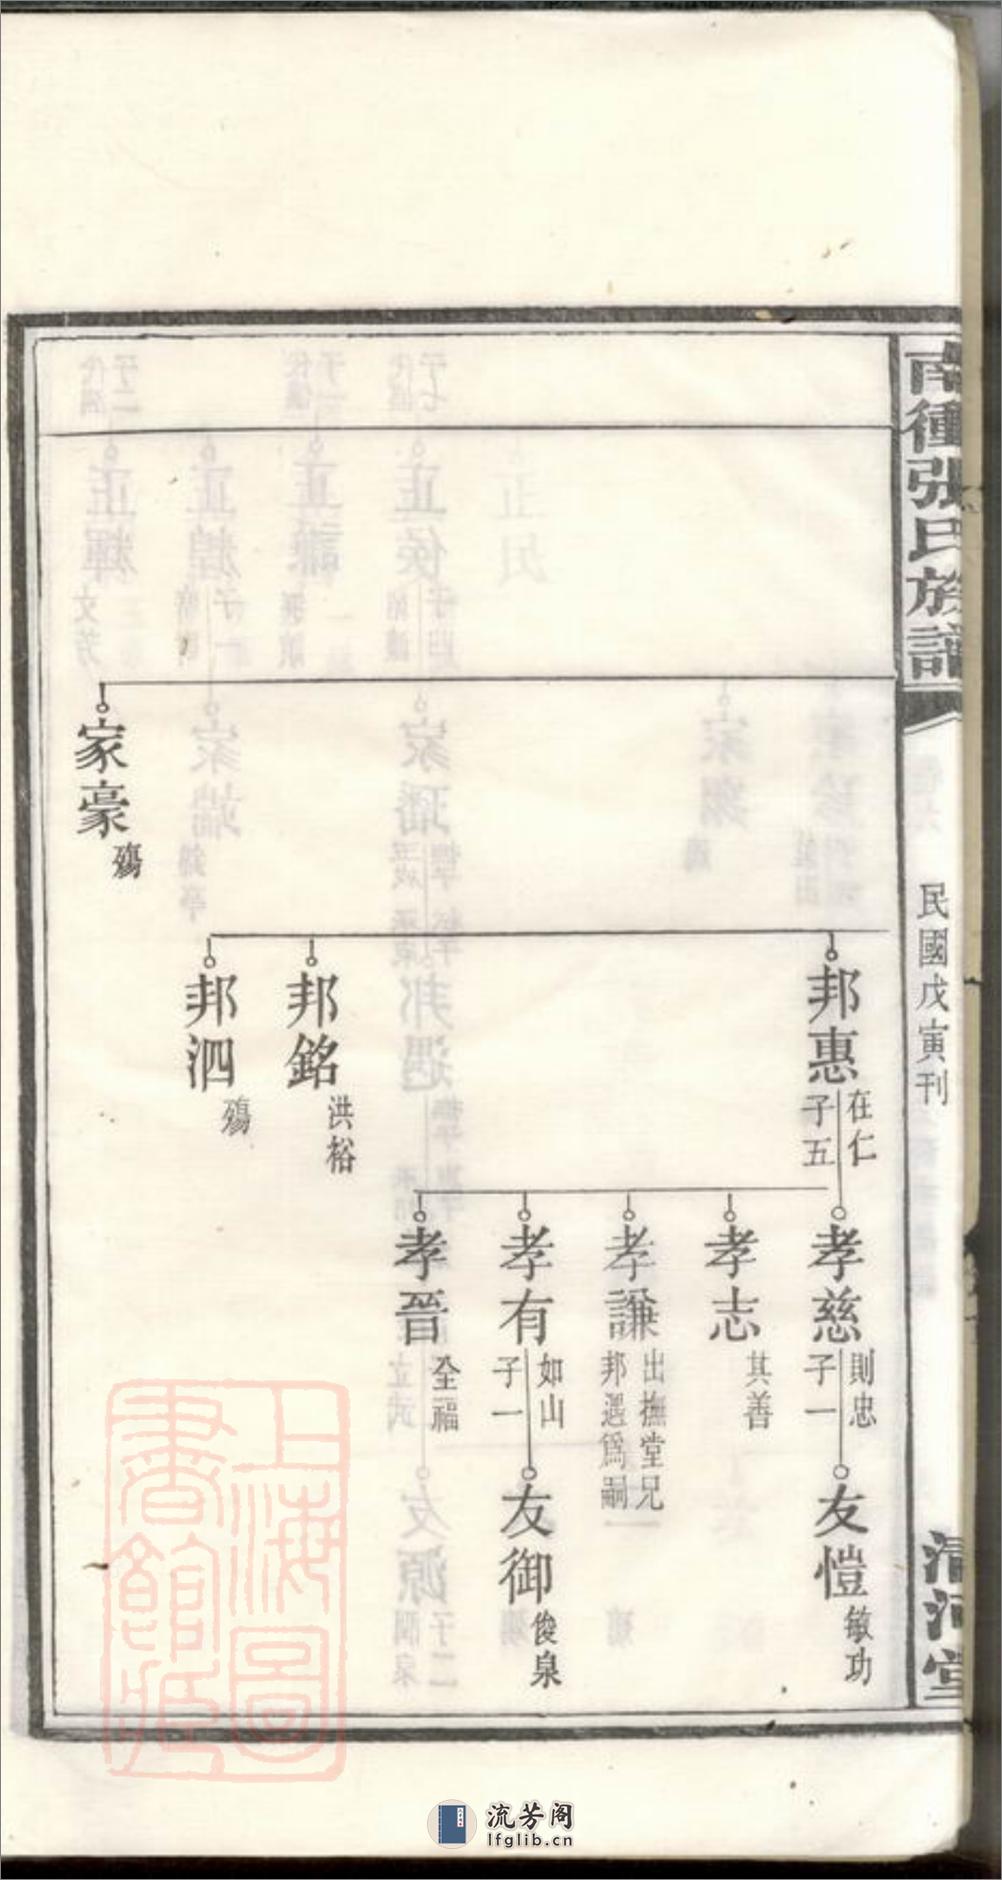 南種張氏族譜
民國戊寅刊
清河堂
家豪
殤
邦惠
在仁
子五
邦銘
洪裕
邦泗
殤
孝慈
則忠
子一
孝志
其善
孝謙
出撫堂兄
邦遇爲嗣
孝有
如山
子一
孝晉
全福
友愷
敏功
友御
俊泉
上海圖
書館藏
流芳阁
lfglib.cn